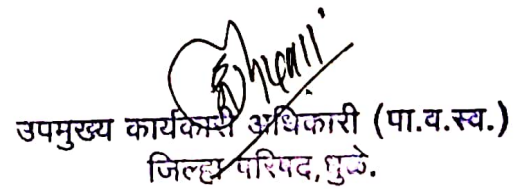 उपमुख्य कार्यकारी अधिकारी (पा.व.स्व.)
जिल्हा परिषद, धुळे.